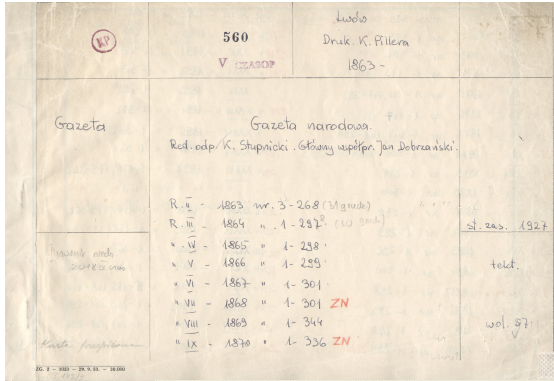 KP
560
V CZASOP
Lwów
Druk. K. Pillera
1863 -
Gazeta
Gazeta narodowa.
Red. odp. K. Stupnicki. Główny współpr. Jan Dobrzański.
R. II - 1863 nr. 3 - 268 (31 grud.)
R. III - 1864 " 1 - 297
" IV - 1865 " 1 - 298
" V - 1866 " 1 - 299
" VI - 1867 " 1 - 301
" VII - 1868 " 1 - 301 ZN
" VIII - 1869 " 1 - 344
" IX - 1870 " 1 - 336 ZN
st. zas. 1927
tekt.
wol. 57
ZG. 2 - 1033 - 29. 9. 53. - 10.000